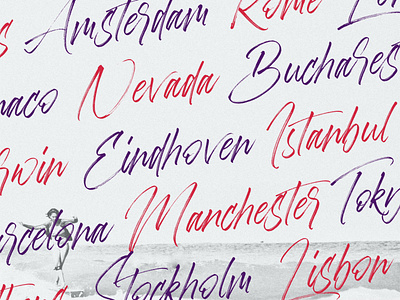 s Amsterdam Rome Lon
naco Nevada Buchares
rwin Eindhoven Istanbul
arcelona Manchester Toky
Stockholm Lisbon